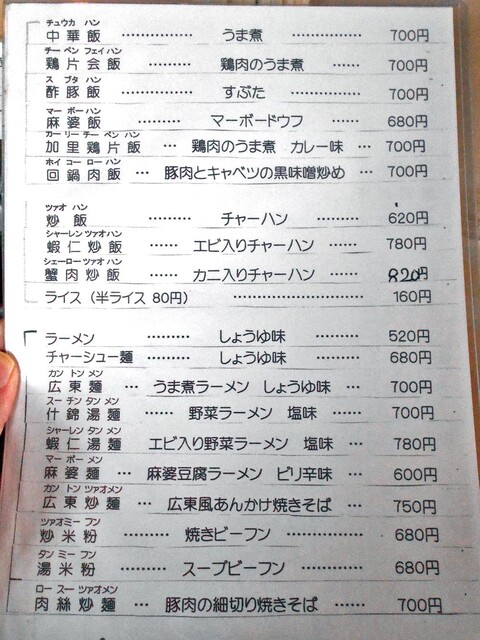 チュウカ ハン
中華飯 …………… うま煮 …………… 700円
チー ペン フェイ ハン
鶏片会飯 ……… 鶏肉のうま煮 …… 700円
ス ブタ ハン
酢豚飯 ……………… すぶた …………… 700円
マー ボー ハン
麻婆飯 ………… マーボードウフ …… 680円
カー リー チー ペン ハン
加里鶏片飯 … 鶏肉のうま煮 カレー味 … 700円
ホイ コー ロー ハン
回鍋肉飯 … 豚肉とキャベツの黒味噌炒め … 700円
ツァオ ハン
炒飯 ……………… チャーハン ………… 620円
シャーレン ツァオ ハン
蝦仁炒飯 …… エビ入りチャーハン …… 780円
シェーロー ツァオ ハン
蟹肉炒飯 …… カニ入りチャーハン …… 820円
ライス(半ライス 80円) ……………… 160円
ラーメン ……… しょうゆ味 ……… 520円
チャーシュー麺 ……… しょうゆ味 ……… 680円
カン トン メン
広東麺 … うま煮ラーメン しょうゆ味 … 700円
スー チン タン メン
什錦湯麺 …… 野菜ラーメン 塩味 …… 700円
シャーレン タン メン
蝦仁湯麺 エビ入り野菜ラーメン 塩味 … 780円
マー ボー メン
麻婆麺 … 麻婆豆腐ラーメン ピリ辛味 … 600円
カン トン ツァオメン
広東炒麺 … 広東風あんかけ焼きそば … 750円
ツァオミー フン
炒米粉 ……… 焼きビーフン ……… 680円
タン ミー フン
湯米粉 ……… スープビーフン ……… 680円
ロー スー ツァオメン
肉絲炒麺 … 豚肉の細切り焼きそば …… 700円